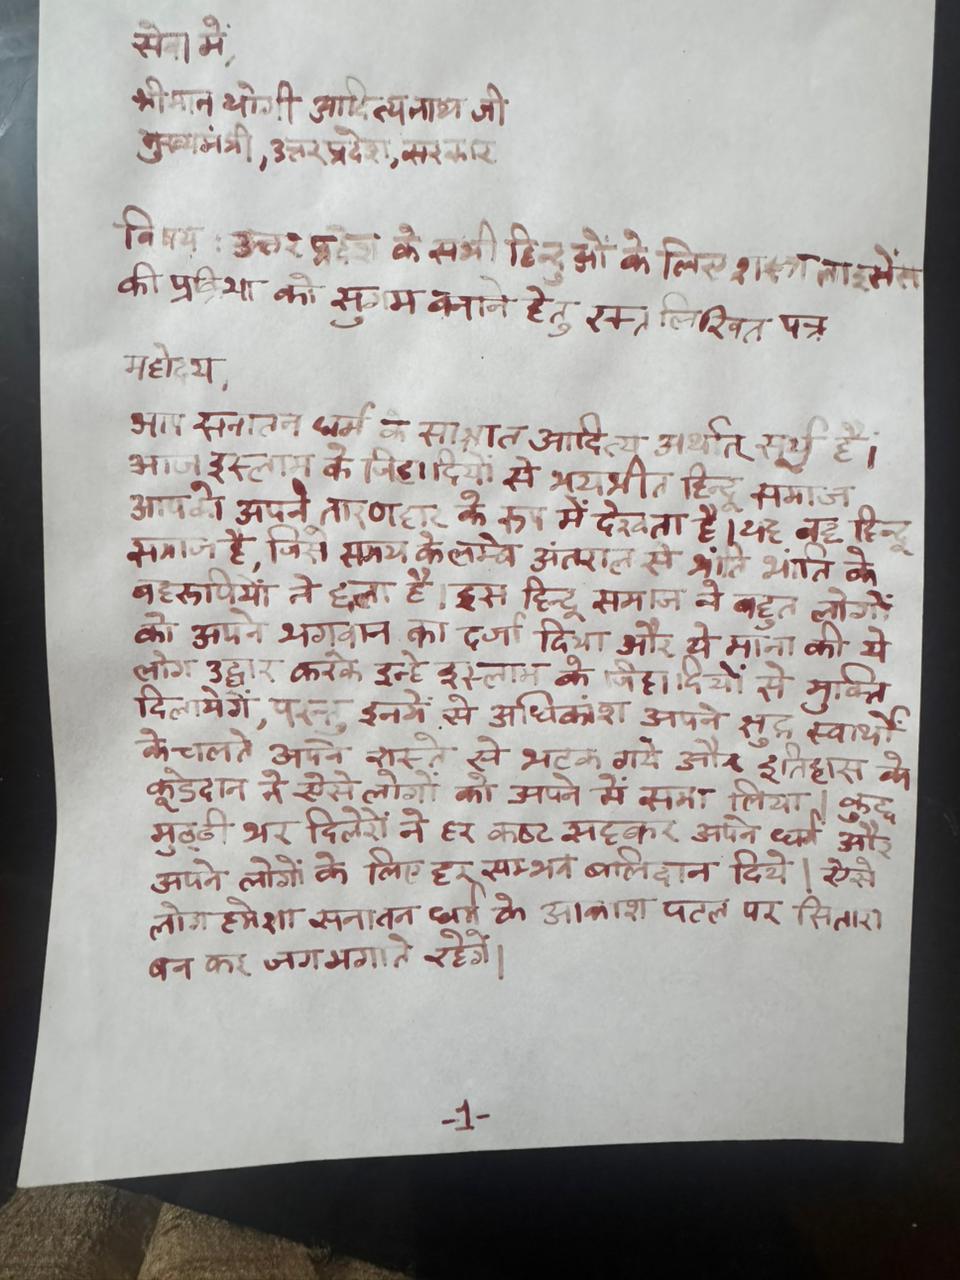 सेवा में,
श्रीमान योगी आदित्यनाथ जी
मुख्यमंत्री, उत्तर प्रदेश, सरकार
विषय : उत्तर प्रदेश के सभी हिन्दुओं के लिए शस्त्र लाइसेंस
की प्रक्रिया को सुगम बनाने हेतु रक्त लिखित पत्र
महोदय,
आप सनातन धर्म के साक्षात आदित्य अर्थात् सूर्य है।
आज इस्लाम के जिहादियों से भयभीत हिन्दू समाज
आपको अपने तारणहार के रूप में देखता है। यह वह हिन्दू
समाज है, जिसे समय के लम्बे अंतराल से भांति भांति के
बहरूपियों ने छला है। इस हिन्दू समाज ने बहुत लोगों
को अपने भगवान का दर्जा दिया और ये माना की ये
लोग उद्धार करके इन्हे इस्लाम के जिहादियों से मुक्ति
दिलायेगें, परन्तु इनमें से अधिकांश अपने क्षुद्र स्वार्थों
के चलते अपने रास्ते से भटक गये और इतिहास के
कूडेदान ने ऐसे लोगों को अपने में समा लिया। कुछ
मुठ्ठी भर दिलेरों ने हर कष्ट सहकर अपने धर्म और
अपने लोगों के लिए हर सम्भव बलिदान दिये। ऐसे
लोग हमेशा सनातन धर्म के आकाश पटल पर सितारा
बन कर जगमगाते रहेगें।
-1-